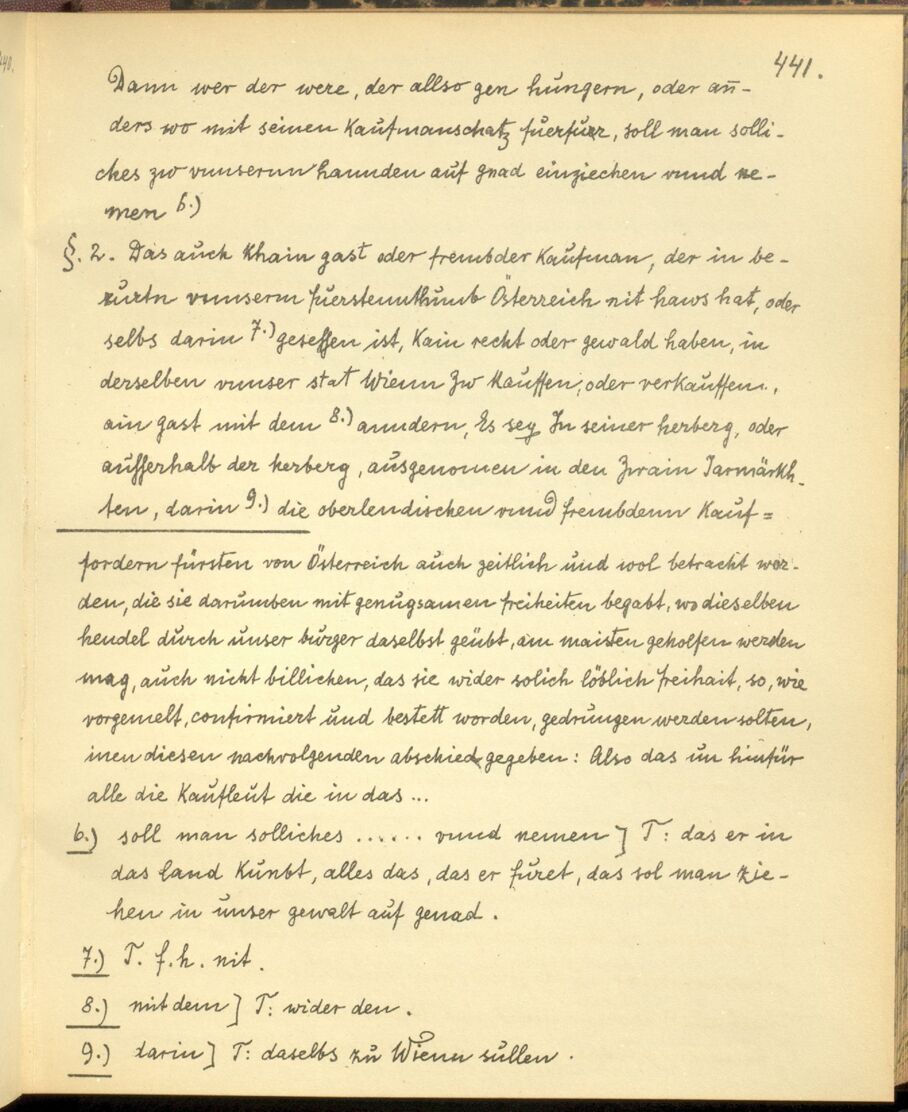 441.
Dann wer der were, der allso gen hungern, oder an̄-
ders wo mit seinen Kaufmanschatz fuerfuer, soll man solli-
ches zw vnnsernn hannden auf gnad einziechen vnnd ne-
men 6.)
§. 2. Das auch Khain gast oder frembder Kaufman, der in be-
rurtn vnnserm fuerstennthumb Österreich nit haws hat, oder
selbs darin 7.) gesessen ist, Kain recht oder gewald haben, in
derselben vnnser stat Wienn Zw Kauffen, oder verkauffenn,
ain gast mit dem 8.) anndern, Es sey In seiner herberg, oder
ausserhalb der herberg, ausgenomen in den Zwain Jarmärkh-
ten, darin 9.) die oberlendischen vnnd frembdenn Kauf=
fordern fürsten von Österreich auch zeitlich und wol betracht wor-
den, die sie darumben mit genugsamen freiheiten begabt, wo dieselben
hendel durch unser burger daselbst geübt, am maisten geholfen werden
mag, auch nicht billichen, das sie wider solich löblich freihait, so, wie
vorgemelt, confirmiert und bestett worden, gedrungen werden solten,
inen diesen nachvolgenden abschied gegeben: Also das un hinfür
alle die Kaufleut die in das ...
6.) soll man solliches ...... vnnd nemen] T: das er in
das land Kumbt, alles das, das er füret, das sol man zie-
hen in unser gewalt auf genad.
7.) T. f. h. nit.
8.) mit dem] T: wider den.
9.) darin] T: daselbs zu Wienn sullen.